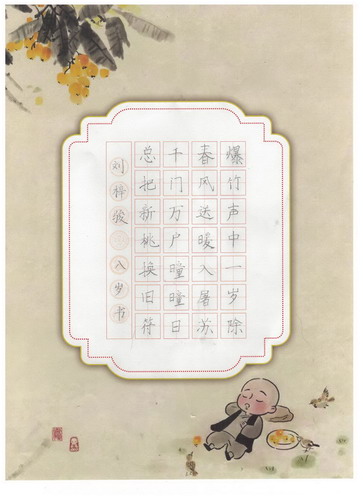 爆竹声中一岁除
春风送暖入屠苏
千门万户瞳瞳日
总把新桃换旧符
刘梓骏 八岁书